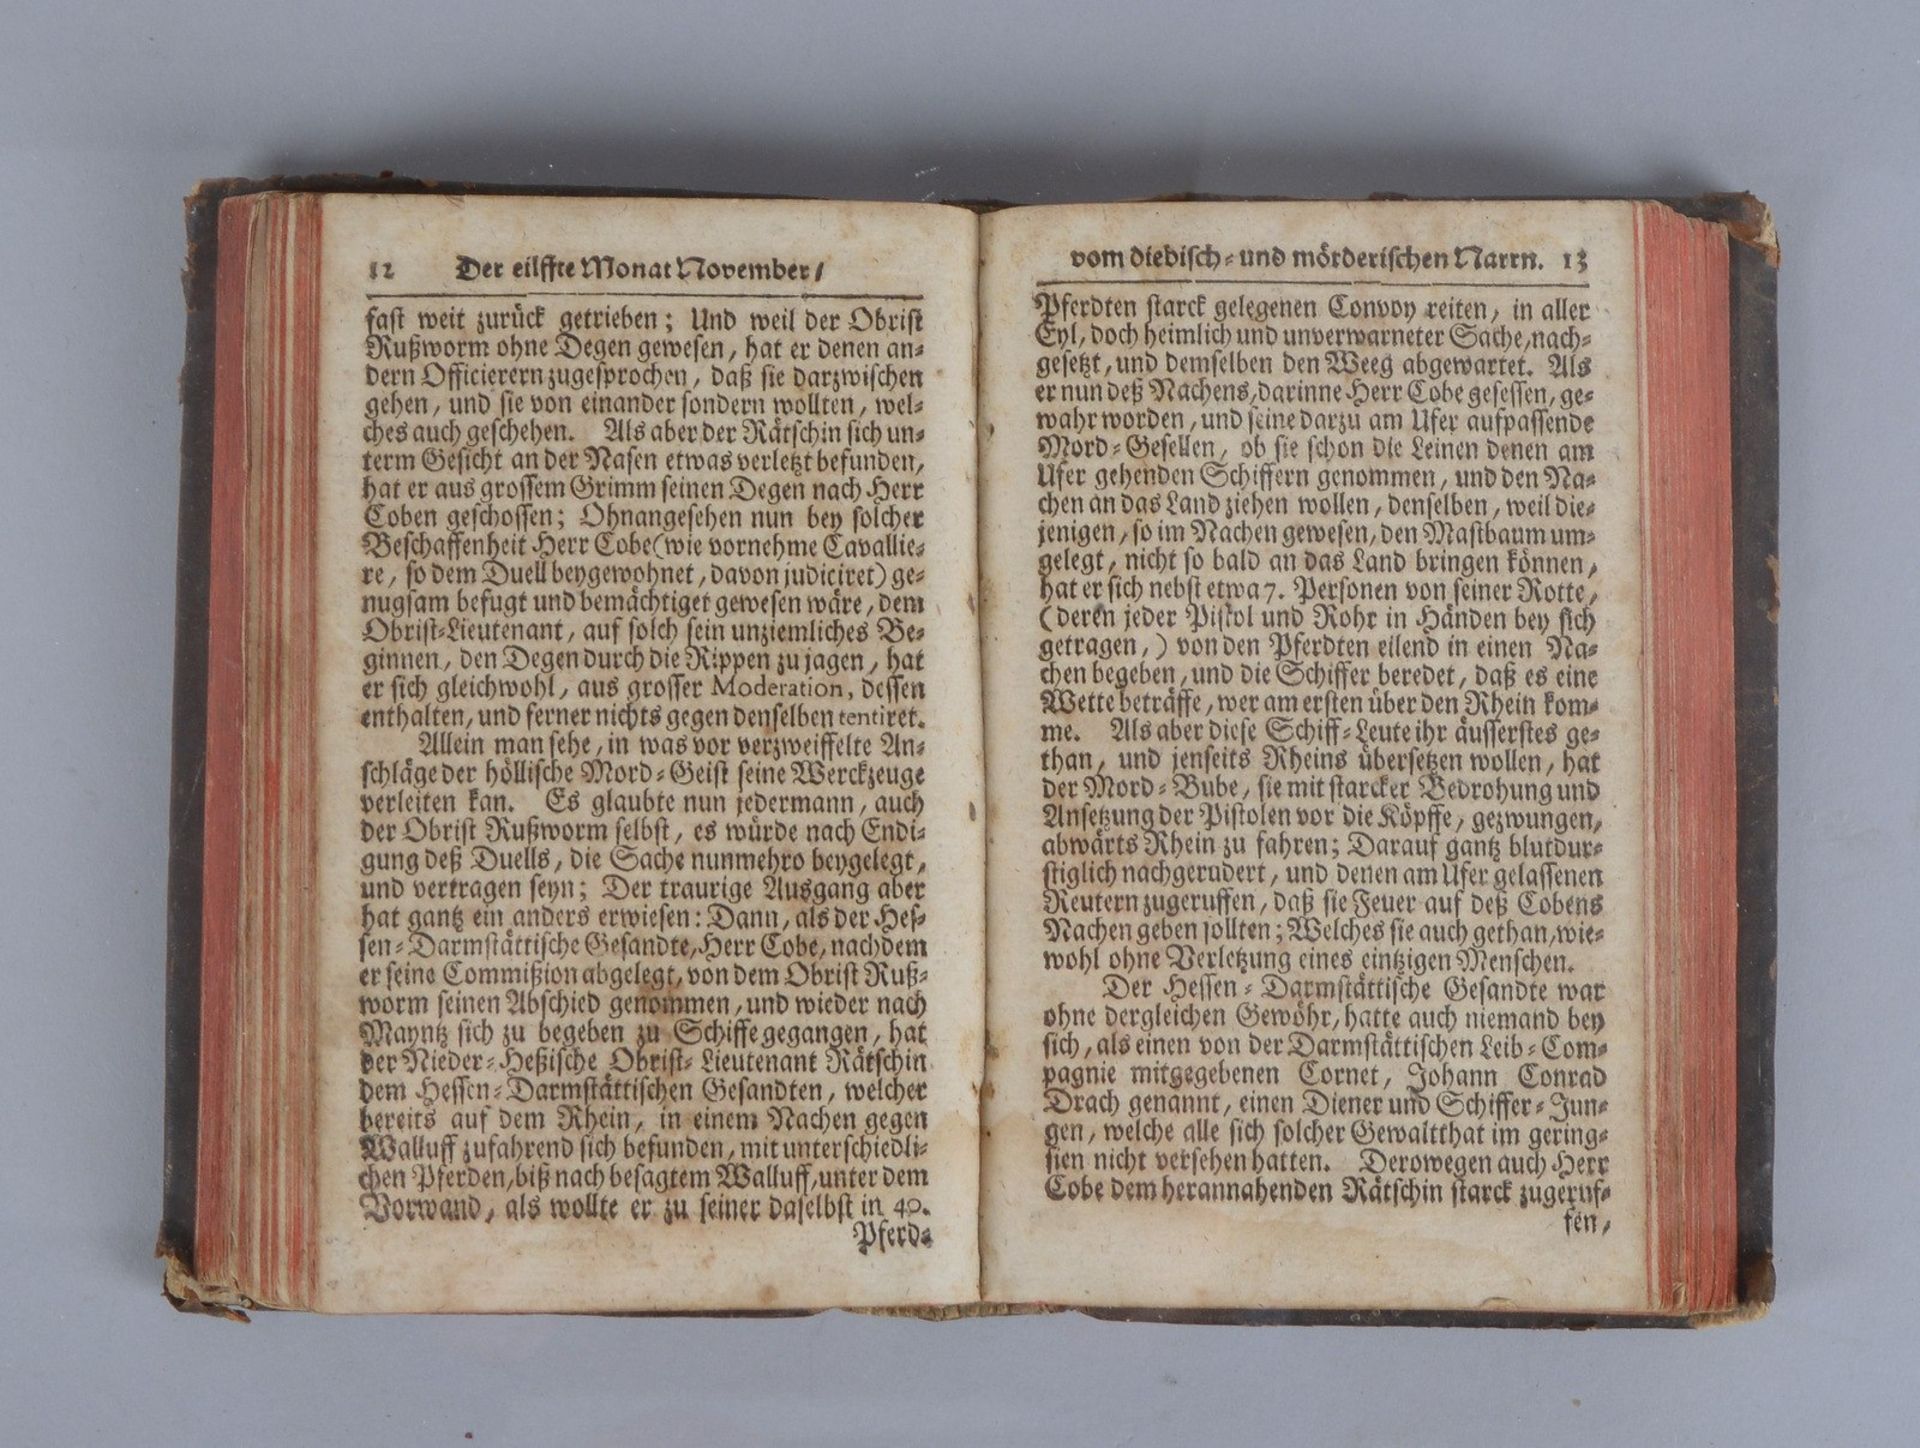 12 Der eilffte Monat November /
fast weit zurück getrieben; Und weil der Obrist
Rußworm ohne Degen gewesen, hat er denen an-
dern Officierern zugesprochen, daß sie darzwischen
gehen, und sie von einander sondern wollten, wel-
ches auch geschehen. Als aber der Rätschin sich un-
term Gesicht an der Nasen etwas verletzt befunden,
hat er aus grossem Grimm seinen Degen nach Herr
Coben geschossen; Ohnangesehen nun bey solcher
Beschaffenheit Herr Cobe (wie vornehme Cavallie-
re, so dem Duell beygewohnet, davon judiciret) ge-
nugsam befugt und bemächtiget gewesen wäre, dem
Obrist-Lieutenant, auf solch sein unziemliches Be-
ginnen, den Degen durch die Rippen zu jagen, hat
er sich gleichwohl, aus grosser Moderation, dessen
enthalten, und ferner nichts gegen denselben tentiret.
Allein man sehe, in was vor verzweiffelte An-
schläge der höllische Mord-Geist seine Werckzeuge
verleiten kan. Es glaubte nun jedermann, auch
der Obrist Rußworm selbst, es würde nach Endi-
gung deß Duells, die Sache nunmehro beygelegt,
und vertragen seyn; Der traurige Ausgang aber
hat gantz ein anders erwiesen: Dann, als der Hes-
sen-Darmstättische Gesandte, Herr Cobe, nachdem
er seine Commißion abgelegt, von dem Obrist Ruß-
worm seinen Abschied genommen, und wieder nach
Mayntz sich zu begeben zu Schiffe gegangen, hat
der Nieder-Heßische Obrist-Lieutenant Rätschin
dem Hessen-Darmstättischen Gesandten, welcher
bereits auf dem Rhein, in einem Nachen gegen
Walluff zufahrend sich befunden, mit unterschiedli-
chen Pferden, biß nach besagtem Walluff, unter dem
Vorwand, als wollte er zu seiner daselbst in 40.
Pferd-
vom diebisch- und mörderischen Narrn. 13
Pferdten starck gelegenen Convoy reiten, in aller
Eyl, doch heimlich und unverwarneter Sache, nach-
gesetzt, und demselben den Weeg abgewartet. Als
er nun deß Nachens, darinne Herr Cobe gesessen, ge-
wahr worden, und seine darzu am Ufer aufpassende
Mord-Gesellen, ob sie schon die Leinen denen am
Ufer gehenden Schiffern genommen, und den Na-
chen an das Land ziehen wollen, denselben, weil die-
jenigen, so im Nachen gewesen, den Mastbaum um-
gelegt, nicht so bald an das Land bringen können,
hat er sich nebst etwa 7. Personen von seiner Rotte,
(deren jeder Pistol und Rohr in Händen bey sich
getragen,) von den Pferdten eilend in einen Na-
chen begeben, und die Schiffer beredet, daß es eine
Wette beträffe, wer am ersten über den Rhein kom-
me. Als aber diese Schiff-Leute ihr äusserstes ge-
than, und jenseits Rheins übersetzen wollen, hat
der Mord-Bube, sie mit starcker Bedrohung und
Ansetzung der Pistolen vor die Köpffe, gezwungen,
abwärts Rhein zu fahren; Darauf gantz blutdur-
stiglich nachgerudert, und denen am Ufer gelassenen
Reutern zugeruffen, daß sie Feuer auf deß Cobens
Nachen geben sollten; Welches sie auch gethan, wie-
wohl ohne Verletzung eines eintzigen Menschen.
Der Hessen-Darmstättische Gesandte war
ohne dergleichen Gewöhr, hatte auch niemand bey
sich, als einen von der Darmstättischen Leib-Com-
pagnie mitgegebenen Cornet, Johann Conrad
Drach genannt, einen Diener und Schiffer-Jun-
gen, welche alle sich solcher Gewaltthat im gering-
sten nicht versehen hatten. Derowegen auch Herr
Cobe dem herannahenden Rätschin starck zugeruf-
fen,